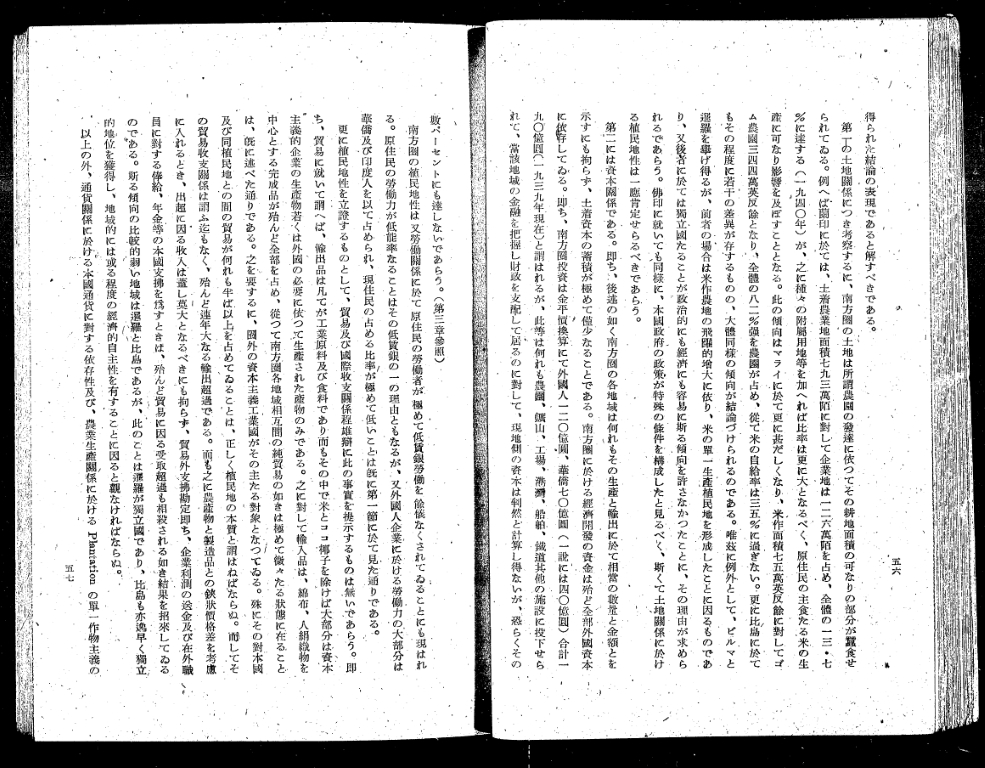 得られた結論の表現であると解すべきである。
第一の土地關係につき考察するに、南方圏の土地は所謂農園の發達に依つてその耕地面積の可なりの部分が蠶食せ
られてゐる。例へば蘭印に於ては、土着農業地面積七九三萬陌に對して企業地は一二六萬陌を占め、全體の一三・七
%に達する(一九四〇年)が、之に種々の附屬用地等を加へれば比率は更に大となるべく、原住民の主食たる米の生
產に可なり影響を及ぼすこととなる。此の傾向はマライに於て更に甚だしくなり、米作面積七五萬英反餘に對してゴ
ム農園三四四萬英反餘となり、全體の八二%强を農園が占め、從て米の自給率は三五%に過ぎない。更に比島に於て
もその程度に若干の差異が存するものの、大體同樣の傾向が結論づけられるのである。唯玆に例外として、ビルマと
暹羅を擧げ得るが、前者の場合は米作農地の飛躍的增大に依り、米の單一生產植民地を形成したことに因るものであ
り、又後者に於ては獨立國たることが政治的にも經濟にも容易に斯る傾向を許さなかつたことに、その理由が求めら
れるであらう。佛印に就いても同樣に、本國政府の政策が特殊の條件を構成したと見るべく、斯くて土地關係に於け
る植民地性は一應肯定せらるべきであらう。
第二には資本關係である。卽ち、後述の如く南方圏の各地域は何れもその生產と輸出に於て相當の數量と金額とを
示すにも拘らず、土着資本の蓄積が極めて僅少なることである。南方圏に於ける經濟開發の資金は殆ど全部外國資本
に依存してゐる。卽ち、南方圏投資は金平價換算にて外國人一二〇億圓、華僑七〇億圓(一說には四〇億圓)合計一
九〇億圓(一九三九年現在)と謂はれるが、此等は何れも農園、鑛山、工場、港灣、船舶、鐵道其他の施設に投下せら
れて、當該地域の金融を把握し財政を支配して居るのに對して、現地側の資本は判然と計算し得ないが、恐らくその
五六
數パーセントにも達しないであらう。(第三章參照)
南方圏の植民地性は又勞働關係に於て原住民の勞働者が極めて低賃銀勞働を餘儀なくされてゐることにも現はれ
る。原住民の勞働力が低能率なることはその低賃銀の一の理由ともなるが、又外國人企業に於ける勞働力の大部分は
華僑及び印度人を以て占められ、現住民の占める比率が極めて低いことは旣に第一節に於て見た通りである。
更に植民地性を立證するものとして、貿易及び國際收支關係程雄辯に此の事實を提示するものは無いであらう。卽
ち、貿易に就いて謂へば、輸出品は凡てが工業原料及び食料でありしかもその中で米とココ椰子を除けば大部分は資本
主義的企業の生產物若くは外國の必要に依つて生產された產物のみである。之に對して輸入品は、綿布、人絹織物を
中心とする完成品が殆んど全部を占め、從つて南方圏各地域相互間の純貿易の如きは極めて微々たる狀態に在ること
は、旣に述べた通りである。之を要するに、圏外の資本主義工業國がその主たる對象となつてゐる。殊にその對本國
及び同植民地との間の貿易が何れも半ば以上を占めてゐることは、正しく植民地の本質と謂はねばならぬ。而してそ
の貿易收支關係は謂ふ迄もなく、殆んど連年大なる輸出超過である。而も之に農產物と製造品との鋏狀價格差を考慮
に入れるとき、出超に因る收入は蓋し莫大となるべきにも拘らず、貿易外支拂勘定卽ち、企業利潤の送金及び在外職
員に對する俸給、年金等の本國支拂を爲すときは、殆んど貿易に因る受取超過も相殺される如き結果を招來してゐる
のである。斯る傾向の比較的弱い地域は暹羅と比島であるが、此のことは暹羅が獨立國であり、比島も亦逸早く獨立
的地位を獲得し、地域的には或る程度の經濟的自主性を有することに因ると觀なければならぬ。
以上の外、通貨關係に於ける本國通貨に對する依存性及び、農業生產關係に於ける Plantation の單一作物主義の
五七